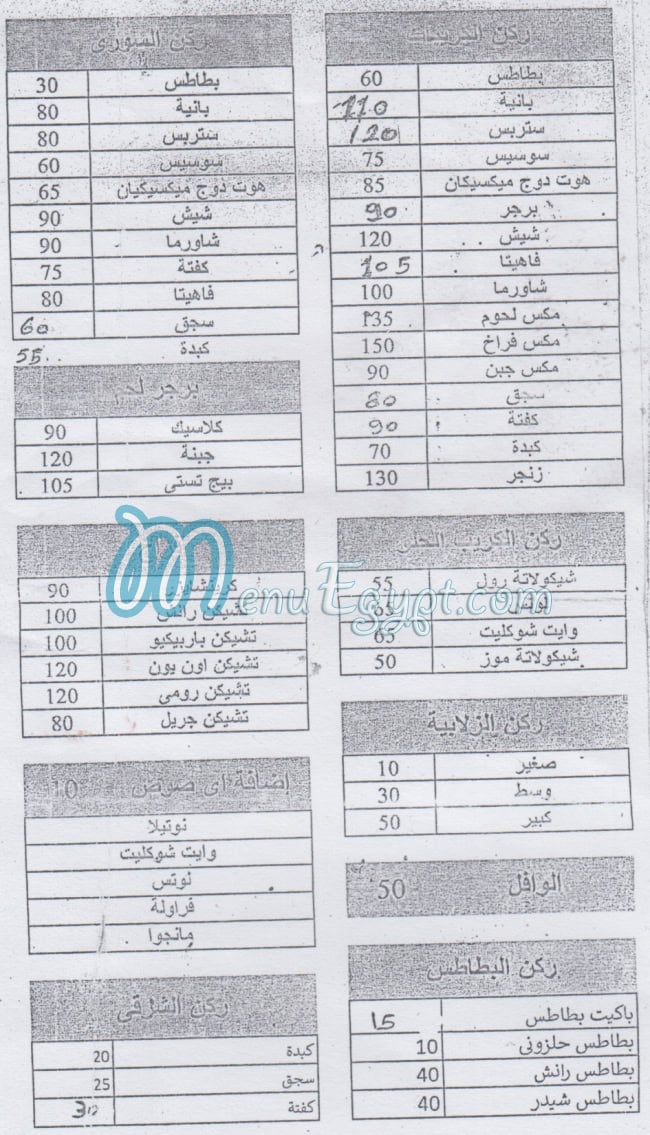 ركن الكريبات
بطاطس 60
بانية 110
ستربس 120
سوسيس 75
هوت دوج ميكسيكان 85
برجر 90
شيش 120
فاهيتا 105
شاورما 100
مكس لحوم 135
مكس فراخ 150
مكس جبن 90
سجق 80
كفتة 90
كبدة 70
زنجر 130
ركن الكريب الحلو
شيكولاتة رول 55
لوتس 65
وايت شوكليت 65
شيكولاتة موز 50
ركن الزلابية
صغير 10
وسط 30
كبير 50
الوافل 50
ركن البطاطس
باكيت بطاطس 15
بطاطس حلزونى 10
بطاطس رانش 40
بطاطس شيدر 40
ركن السورى
بطاطس 30
بانية 80
ستربس 80
سوسيس 60
هوت دوج ميكسيكيان 65
شيش 90
شاورما 90
كفتة 75
فاهيتا 80
سجق 60
كبدة 55
برجر لحم
كلاسيك 90
جبنة 120
بيج تستى 105
90
تشيكن رانش 100
تشيكن باربيكيو 100
تشيكن اون يون 120
تشيكن رومى 120
تشيكن جريل 80
إضافة اى صوص 10
نوتيلا
وايت شوكليت
لوتس
فراولة
مانجوا
ركن الشرقى
كبدة 20
سجق 25
كفتة 30
MenuEgypt.com